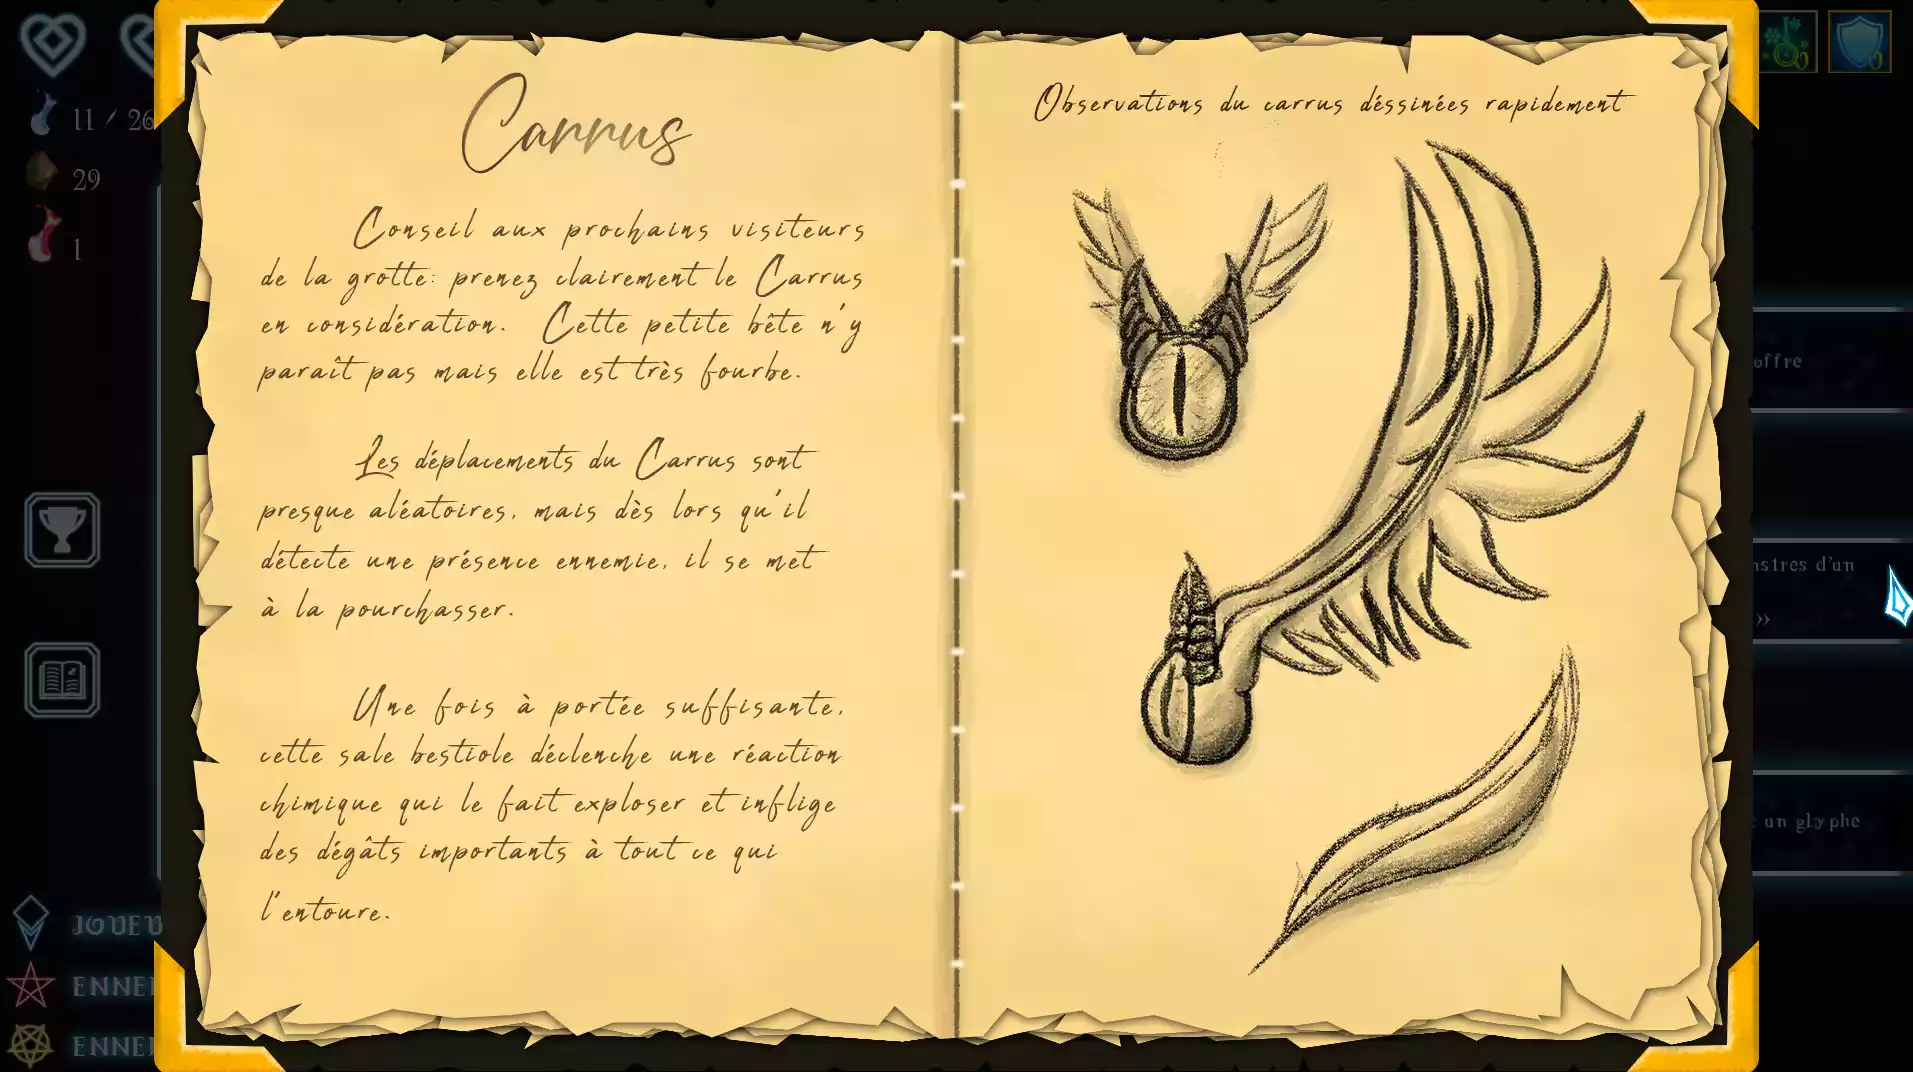 11 / 26
29
1
JOUEU
ENNE
ENNE
Carrus
Conseil aux prochains visiteurs
de la grotte: prenez clairement le Carrus
en considération. Cette petite bête n'y
paraît pas mais elle est très fourbe.
Les déplacements du Carrus sont
presque aléatoires, mais dès lors qu'il
détecte une présence ennemie, il se met
à la pourchasser.
Une fois à portée suffisante,
cette sale bestiole déclenche une réaction
chimique qui le fait exploser et inflige
des dégâts importants à tout ce qui
l'entoure.
Observations du carrus déssinées rapidement
0
0
offre
nstres d'un
»
un glyphe